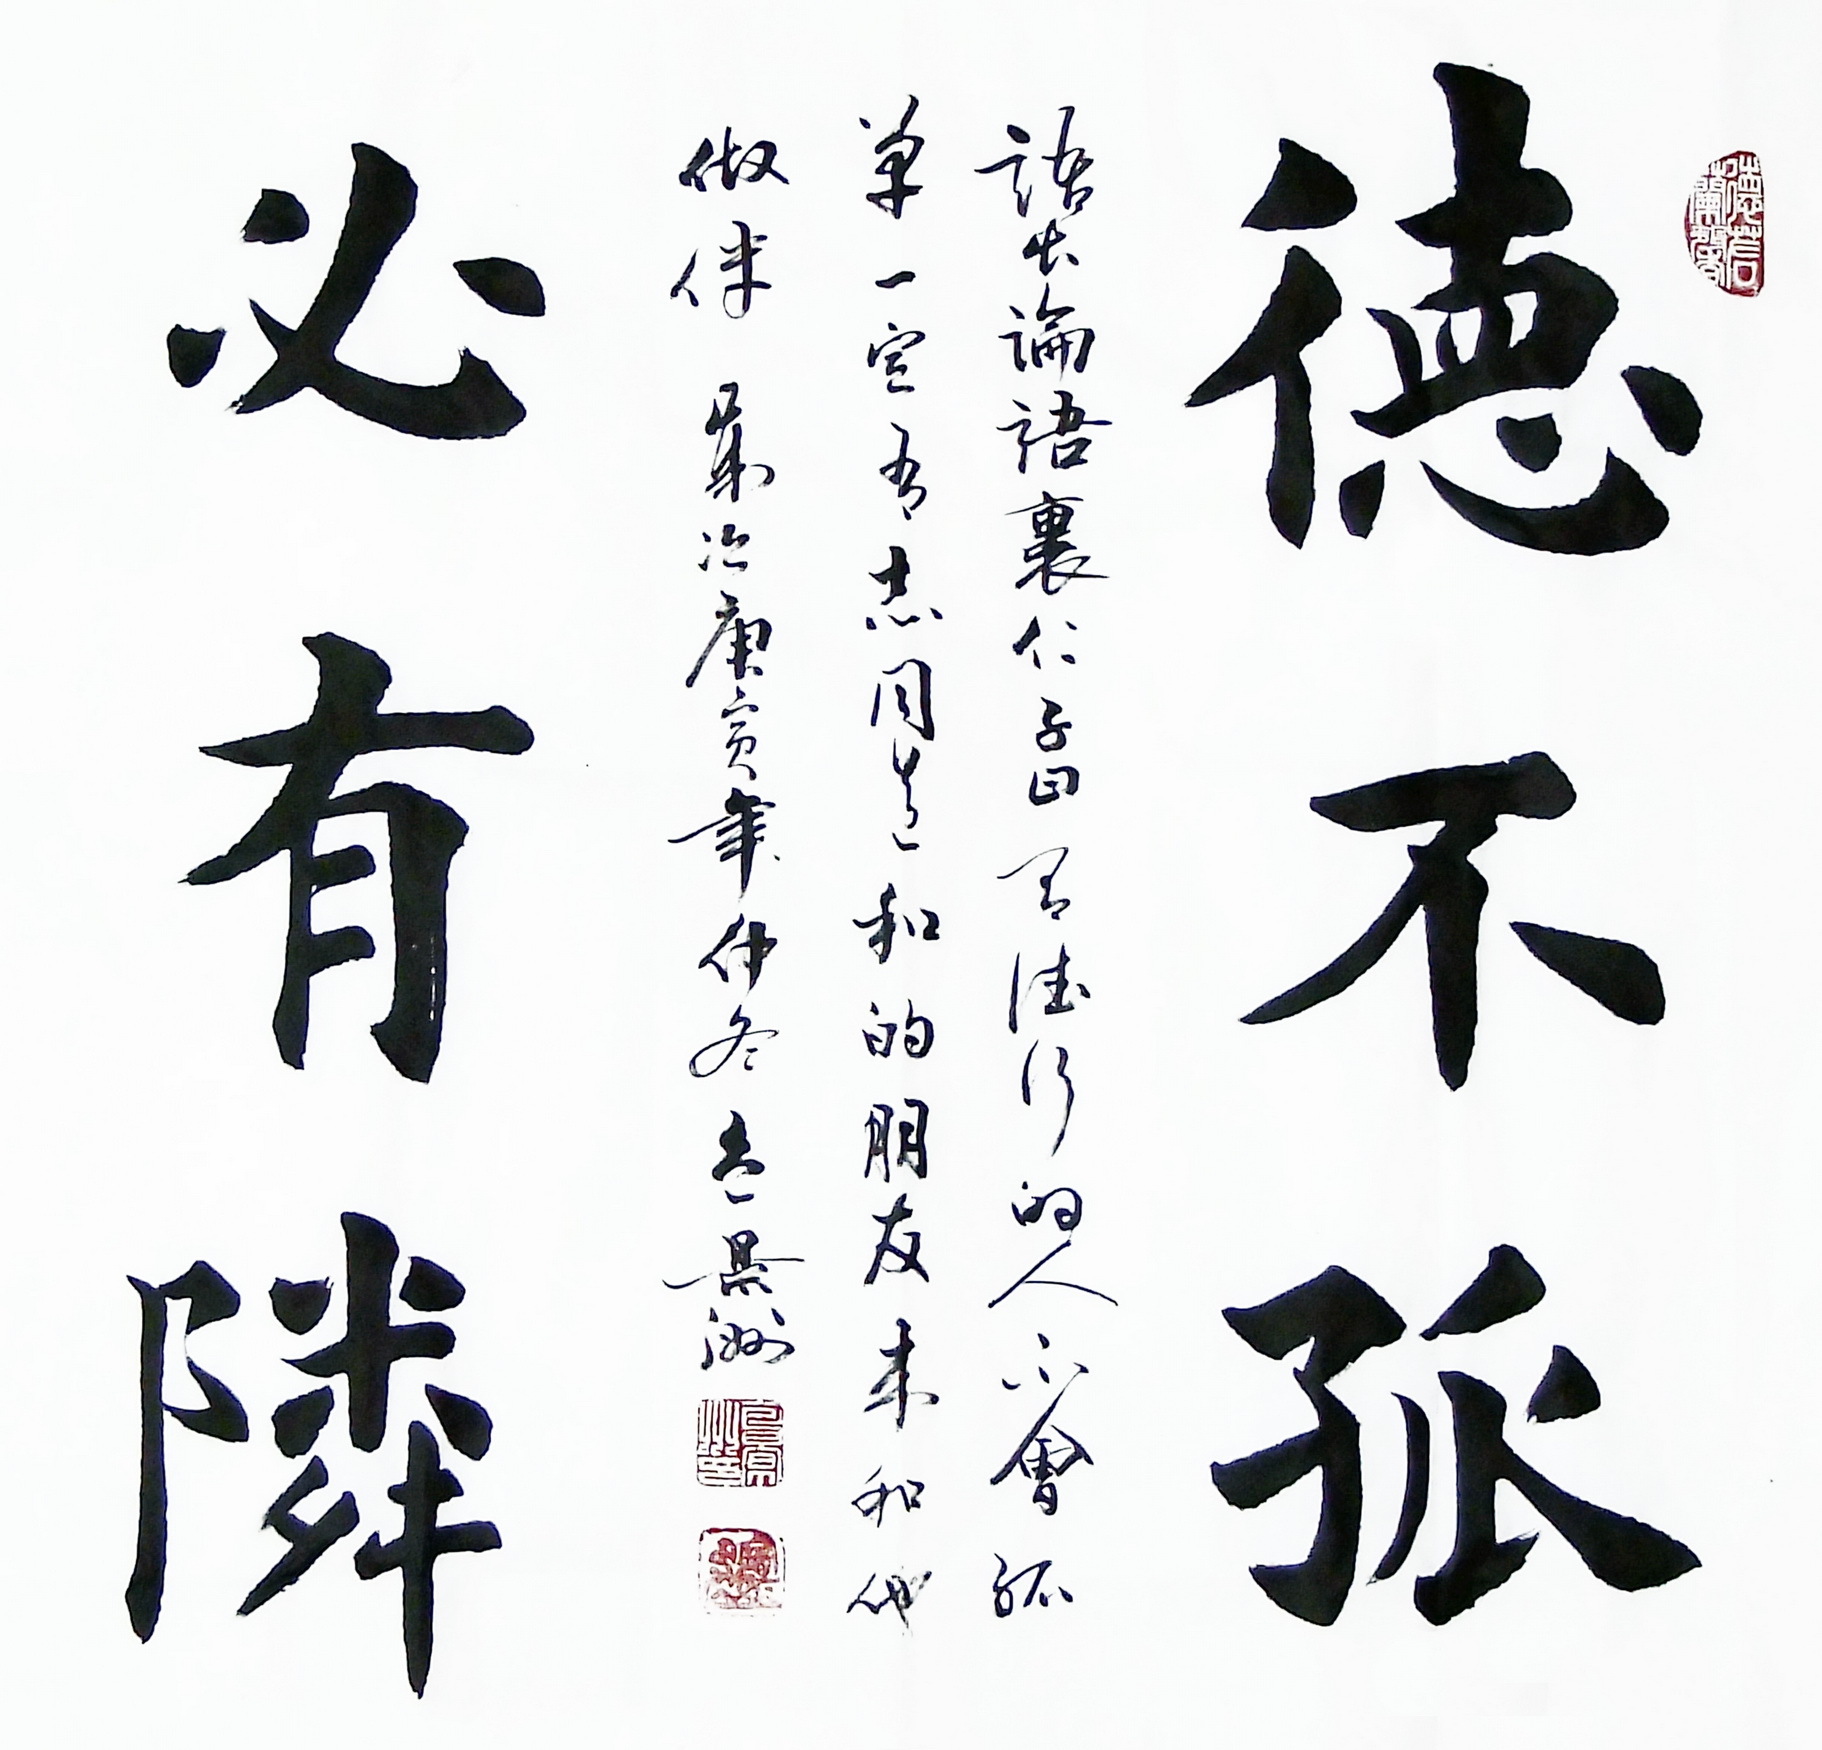 德不孤
語出論語裏仁子曰有德行的人不會孤
單一定有志同道和的朋友来和他
做伴 歲次庚寅年仲冬 景洲
必有隣
德若蘭馨